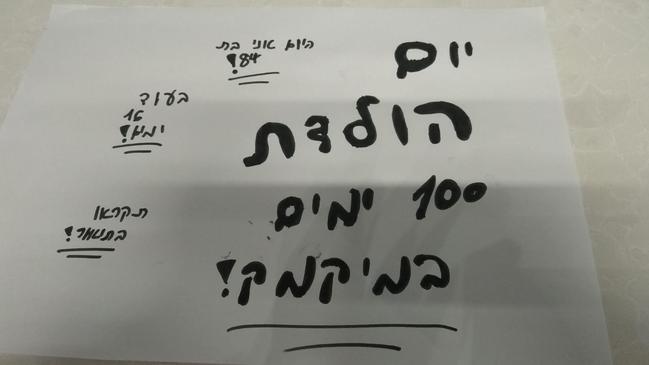 יום
הולדת
100 ימים
במיקמק!
היום אני בת
84!
בעוד
16
ימים!
תקראו
בתיאור!